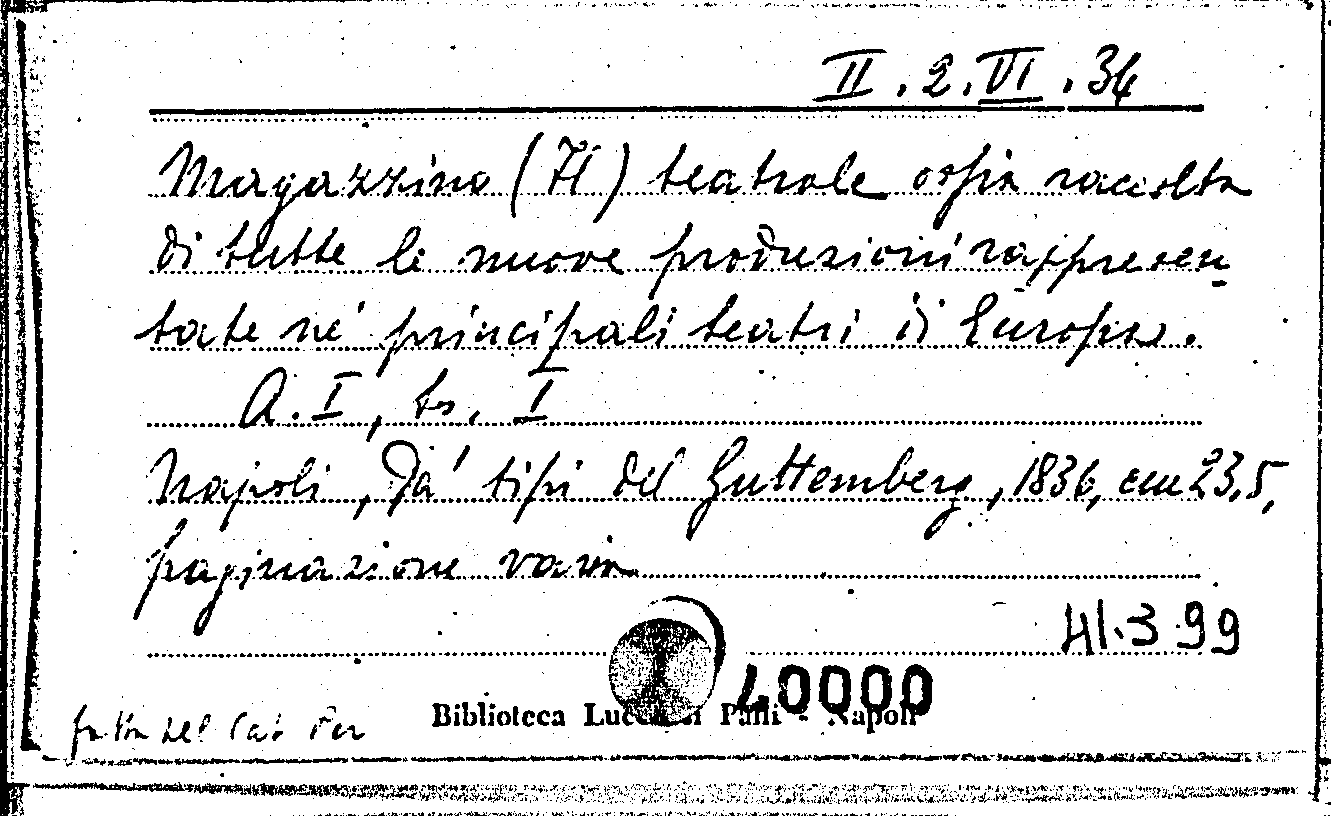 II.2.VI.34
Magazzino (Il) teatrale ossia raccolta
di tutte le nuove produzioni rappresen-
tate ne' principali teatri di Europa.
A. I, to. I
Napoli, Da' tipi del Guttemberg, 1836, cm 23,5,
paginazione varia
41.3.99
40000
Biblioteca Lucchesi Palli - Napoli
fatta del Cat Per